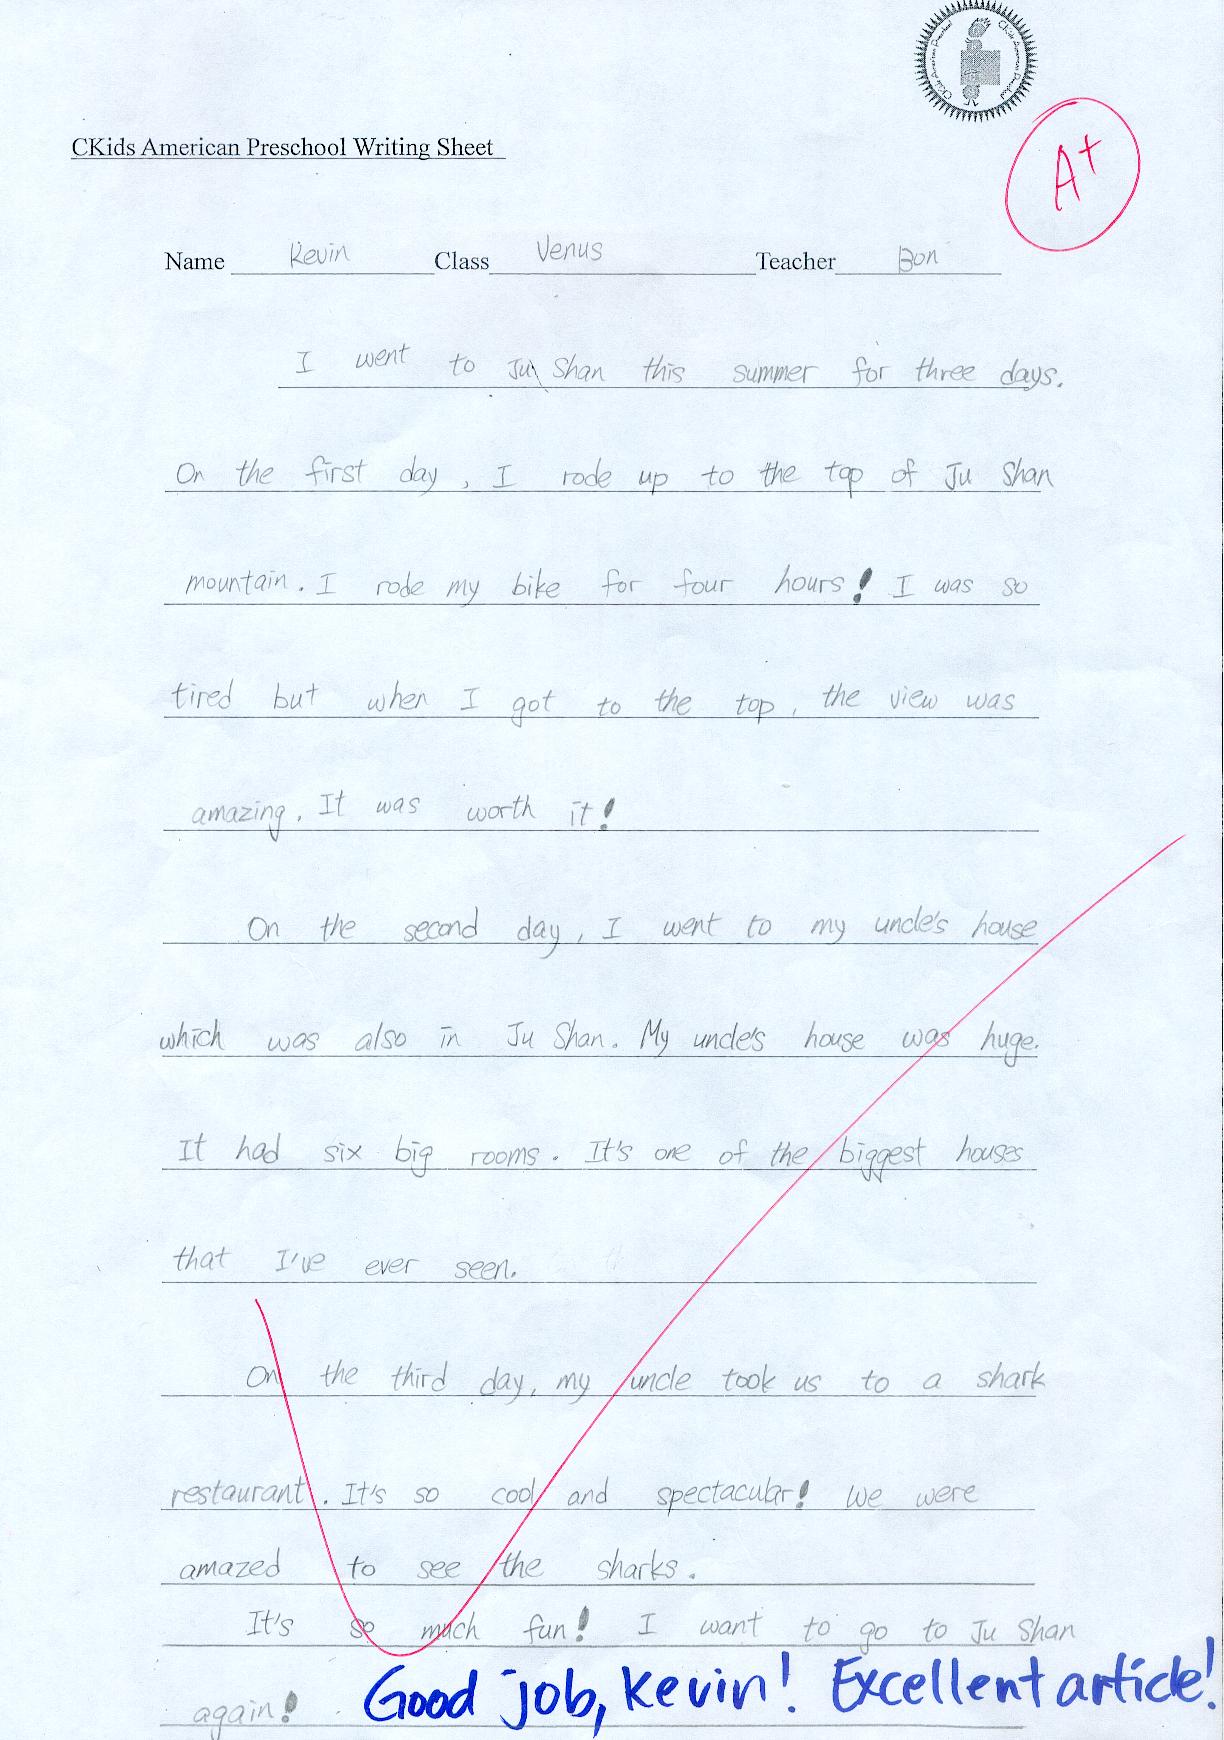 CKids American Preschool
CKids American Preschool Writing Sheet
A+
Name Kevin Class Venus Teacher Bon
I went to Ju Shan this summer for three days.
On the first day, I rode up to the top of Ju Shan
mountain. I rode my bike for four hours! I was so
tired but when I got to the top, the view was
amazing. It was worth it!
On the second day, I went to my uncle's house
which was also in Ju Shan. My uncle's house was huge.
It had six big rooms. It's one of the biggest houses
that I've ever seen.
On the third day, my uncle took us to a shark
restaurant. It's so cool and spectacular! We were
amazed to see the sharks.
It's so much fun! I want to go to Ju Shan
again! Good job, Kevin! Excellent article!